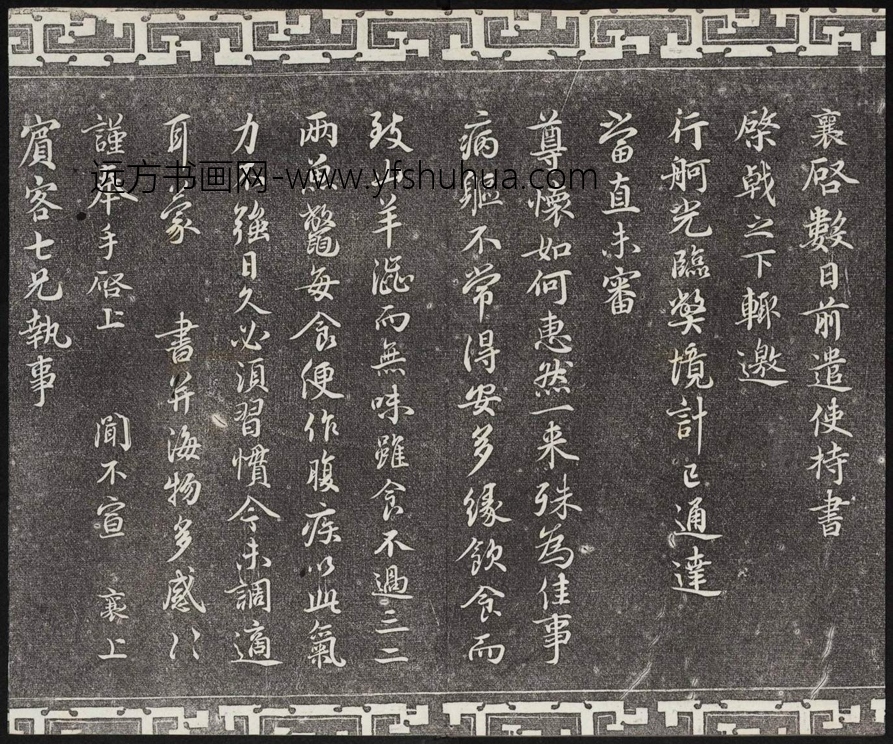 襄啓數日前遣使持書
棨戟之下輒邀
行舸光臨獘境計已通達
當直未審
尊懷如何惠然一来殊為佳事
病軀不常得安多緣飲食而
致此羊澁而無味雖食不過三二
兩并鼈每食便作腹疾以此氣
力不強日久必須習慣今未調適
耳蒙 書并海物多感〻
謹奉手啓上 聞不宣 襄上
賓客七兄執事
远方书画网-www.yfshuhua.com